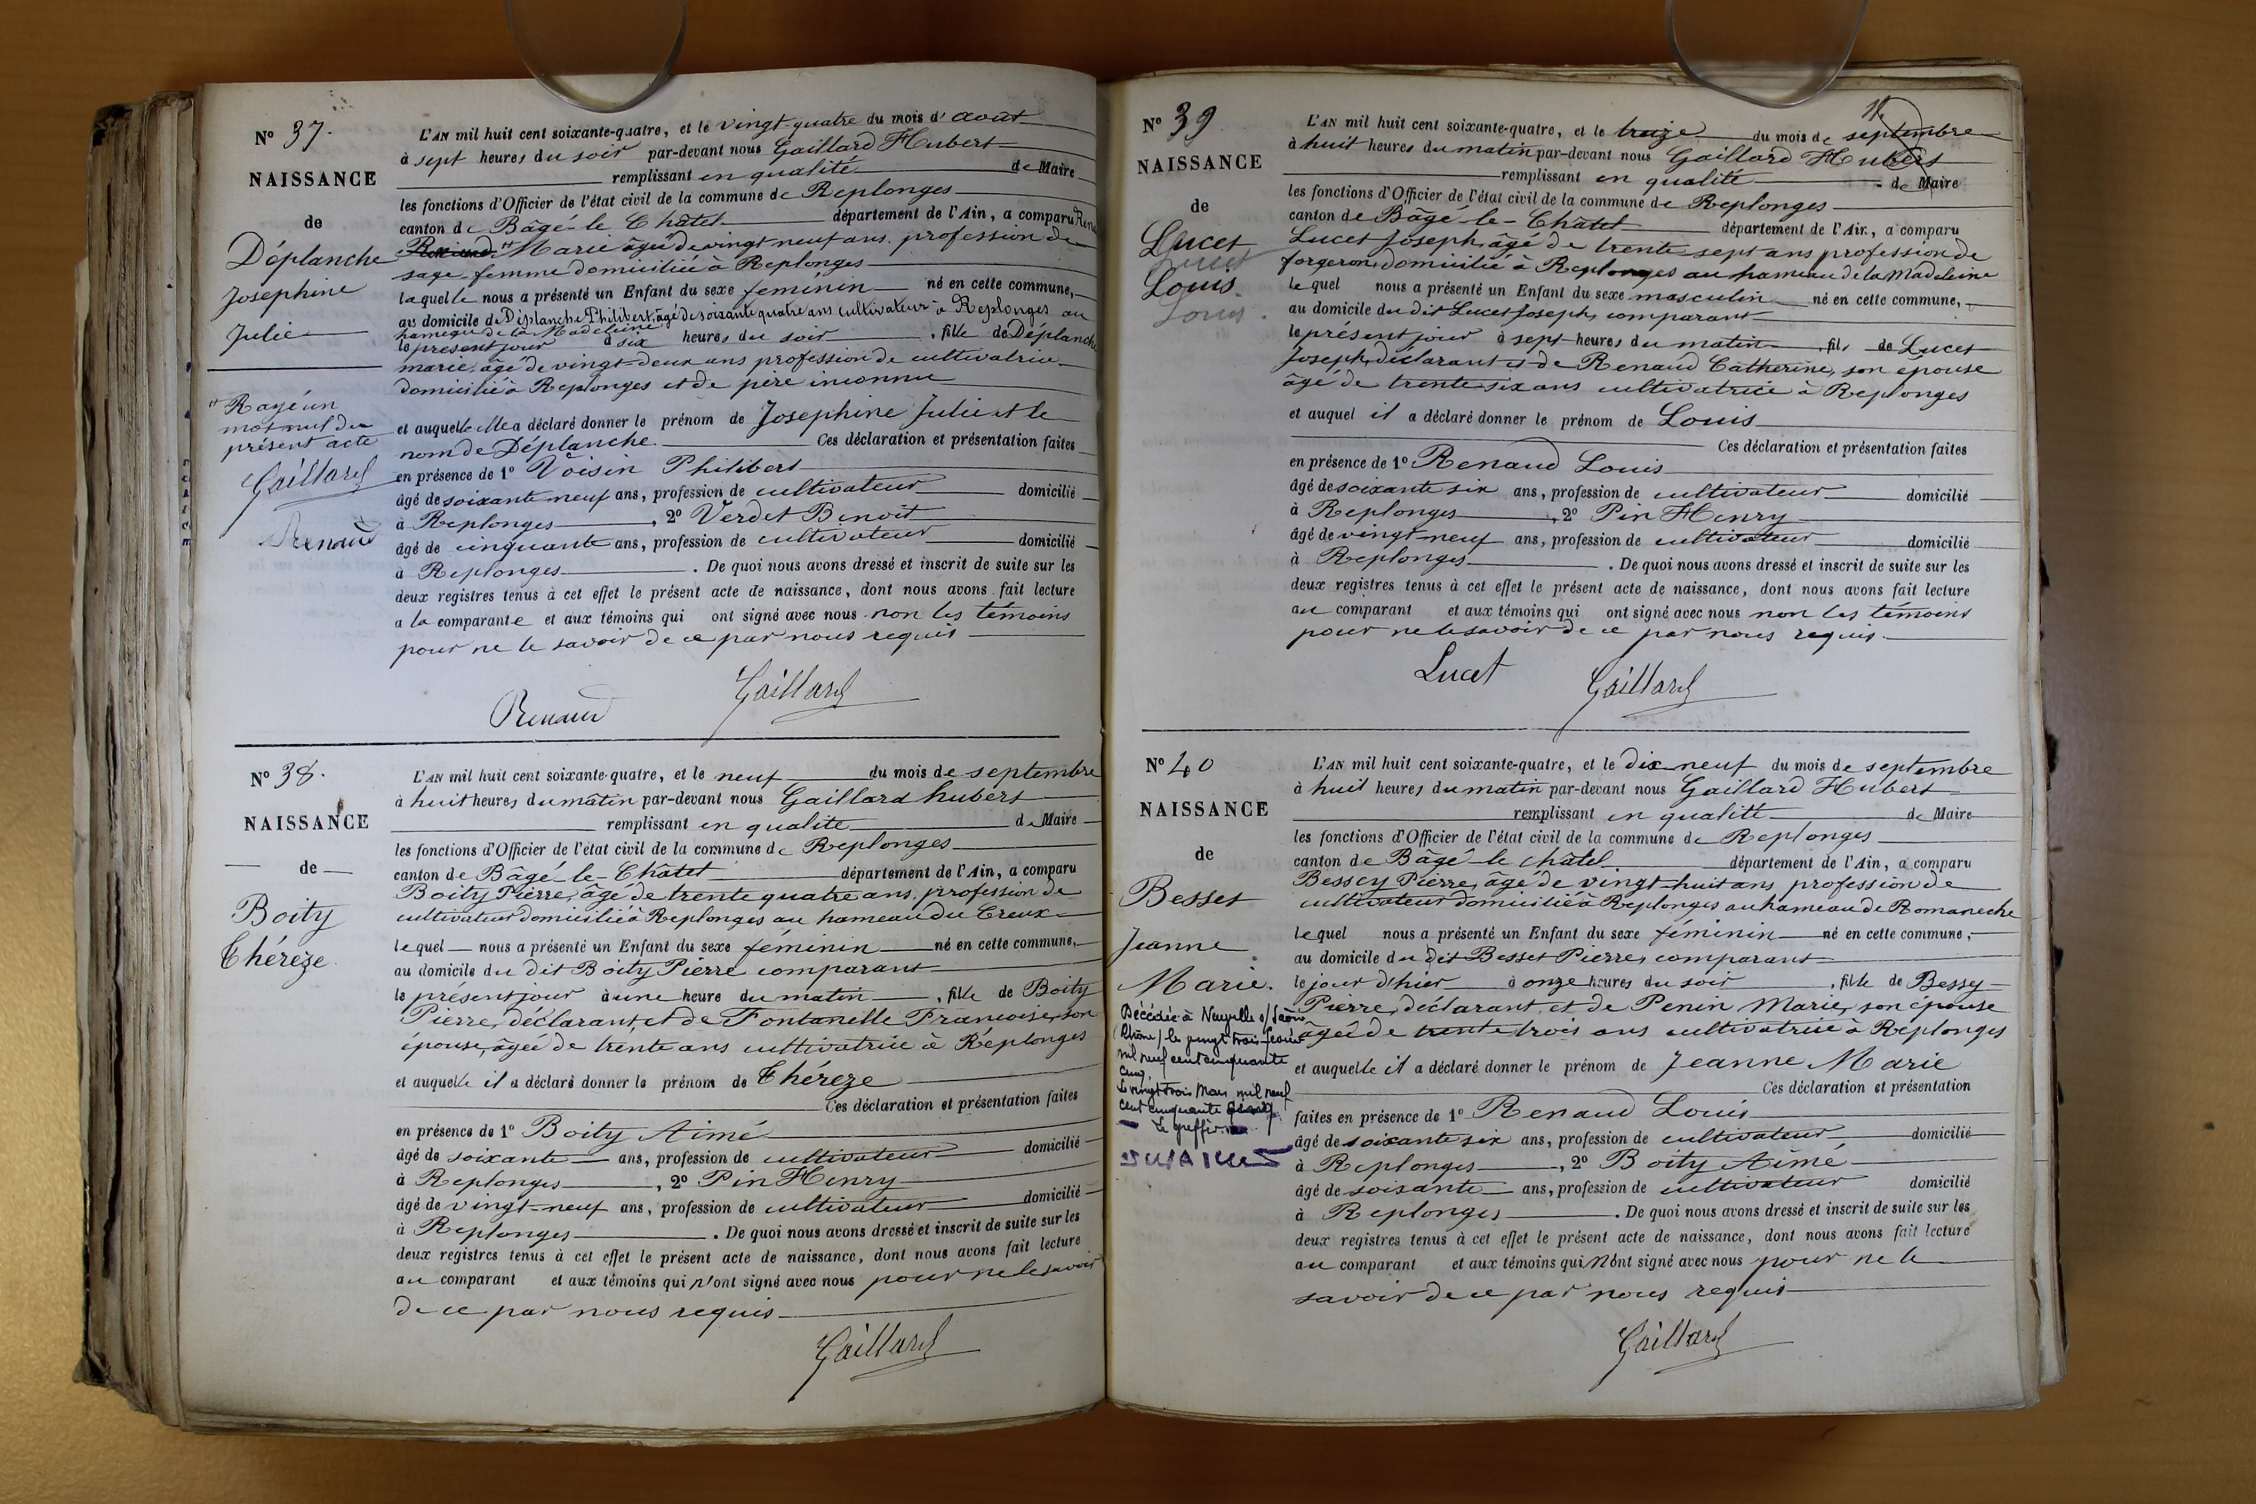 N° 37.
NAISSANCE
de
Déplanche
Josephine
Julie
Rayé un
mot nul du
présent acte
Gaillard
Renaud
L'AN mil huit cent soixante-quatre, et le vingt quatre du mois d'août
à sept heures du soir par-devant nous Gaillard Hubert
remplissant en qualité de Maire
les fonctions d'Officier de l'état civil de la commune de Replonges
canton de Bâgé-le Châtel département de l'Ain, a comparu
Marie âgée de vingt neuf ans profession de
sage femme domiciliée à Replonges
laquelle nous a présenté un Enfant du sexe feminin né en cette commune,
au domicile de Déplanche Philibert, âgé de soixante quatre ans cultivateur à Replonges au
hameau de la Madeleine
le présent jour à six heures du soir, fille de Déplanche
marie, âgé de vingt-deux ans profession de cultivatrice
domicilié à Replonges et de père inconnu
et auquelle elle a déclaré donner le prénom de Josephine Julie et le
nom de Déplanche. Ces déclaration et présentation faites
en présence de 1° Voisin Philibert
âgé de soixante neuf ans, profession de cultivateur domicilié
à Replonges, 2° Verdet Benoit
âgé de cinquante ans, profession de cultivateur domicilié
à Replonges. De quoi nous avons dressé et inscrit de suite sur les
deux registres tenus à cet effet le présent acte de naissance, dont nous avons fait lecture
a la comparante et aux témoins qui ont signé avec nous non les témoins
pour ne le savoir de ce par nous requis
Renaud Gaillard
N° 38.
NAISSANCE
de
Boity
Thérèze
L'AN mil huit cent soixante-quatre, et le neuf du mois de septembre
à huit heures du matin par-devant nous Gaillard hubert
remplissant en qualité de Maire
les fonctions d'Officier de l'état civil de la commune de Replonges
canton de Bâgé-le-Châtel département de l'Ain, a comparu
Boity Pierre, âgé de trente quatre ans, profession de
cultivateur domicilié à Replonges au hameau du Creux
lequel nous a présenté un Enfant du sexe féminin né en cette commune,
au domicile du dit Boity Pierre comparant
le présent jour à une heure du matin, fille de Boity
Pierre, déclarant, et de Fontanelle Francoise, son
épouse, âgée de trente ans cultivatrice à Réplonges
et auquelle il a déclaré donner le prénom de Thérèze
Ces déclaration et présentation faites
en présence de 1° Boity Aimé
âgé de soixante ans, profession de cultivateur domicilié
à Replonges, 2° Pin Henry
âgé de vingt-neuf ans, profession de cultivateur domicilié
à Replonges. De quoi nous avons dressé et inscrit de suite sur les
deux registres tenus à cet effet le présent acte de naissance, dont nous avons fait lecture
au comparant et aux témoins qui n'ont signé avec nous pour ne le savoir
de ce par nous requis
Gaillard
N° 39
NAISSANCE
de
Lucet
Lucet
Louis.
Louis.
L'AN mil huit cent soixante-quatre, et le treize du mois de septembre
à huit heures du matin par-devant nous Gaillard Hubert
remplissant en qualité de Maire
les fonctions d'Officier de l'état civil de la commune de Replonges
canton de Bâgé-le-Châtel département de l'Ain, a comparu
Lucet Joseph, âgé de trente sept ans profession de
forgeron, domicilié à Replonges au hameau de la Madeleine
lequel nous a présenté un Enfant du sexe masculin né en cette commune,
au domicile du dit Lucet Joseph, comparant
le présent jour à sept heures du matin, fils de Lucet
Joseph, déclarant et de Renaud Catherine, son épouse
âgé de trente-six ans cultivatrice à Replonges
et auquel il a déclaré donner le prénom de Louis
Ces déclaration et présentation faites
en présence de 1° Renaud Louis
âgé de soixante six ans, profession de cultivateur domicilié
à Replonges, 2° Pin Henry
âgé de vingt neuf ans, profession de cultivateur domicilié
à Replonges. De quoi nous avons dressé et inscrit de suite sur les
deux registres tenus à cet effet le présent acte de naissance, dont nous avons fait lecture
au comparant et aux témoins qui ont signé avec nous non les témoins
pour ne le savoir de ce par nous requis.
Lucet Gaillard
N° 40
NAISSANCE
de
Besset
Jeanne
Marie.
Décédée à Neuville s/Saone
(Rhône) le vingt trois février
mil neuf cent cinquante
cinq.
Le vingt trois Mars mil neuf
cent cinquante
Le greffier
L'AN mil huit cent soixante-quatre, et le dix neuf du mois de septembre
à huit heures du matin par-devant nous Gaillard Hubert
remplissant en qualité de Maire
les fonctions d'Officier de l'état civil de la commune de Replonges
canton de Bâgé-le châtel département de l'Ain, a comparu
Bessey Pierre, âgé de vingt-huit ans profession de
cultivateur domicilié à Replonges au hameau de Romaneche
lequel nous a présenté un Enfant du sexe féminin né en cette commune,
au domicile du dit Besset Pierre, comparant
le jour d'hier à onze heures du soir, fille de Bessey
Pierre, déclarant, et de Penin Marie, son épouse
âgée de trente trois ans cultivatrice à Replonges
et auquelle il a déclaré donner le prénom de Jeanne Marie
Ces déclaration et présentation
faites en présence de 1° Renaud Louis
âgé de soixante six ans, profession de cultivateur domicilié
à Replonges, 2° Boity Aimé
âgé de soixante ans, profession de cultivateur domicilié
à Replonges. De quoi nous avons dressé et inscrit de suite sur les
deux registres tenus à cet effet le présent acte de naissance, dont nous avons fait lecture
au comparant et aux témoins qui N'ont signé avec nous pour ne le
savoir de ce par nous requis
Gaillard